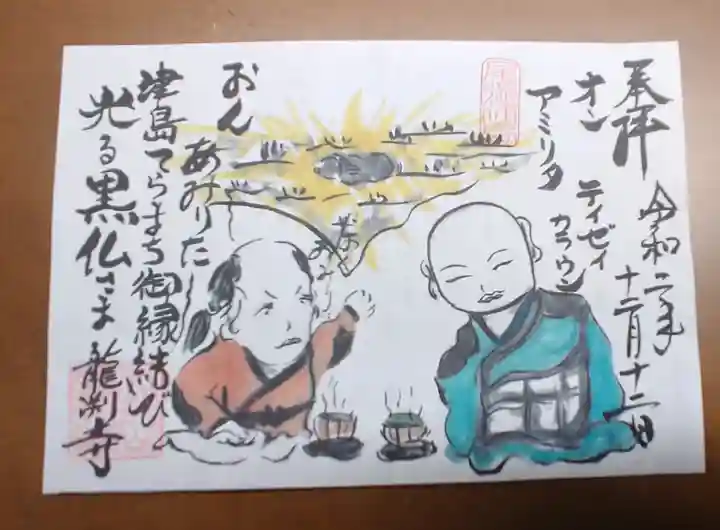 奉拝
令和二年
十二月十二日
オン
アミリタ
テイゼイ
カラウン
おん
あみりたー
津島てらまち御縁結び
光る黒仏さま 龍渕寺